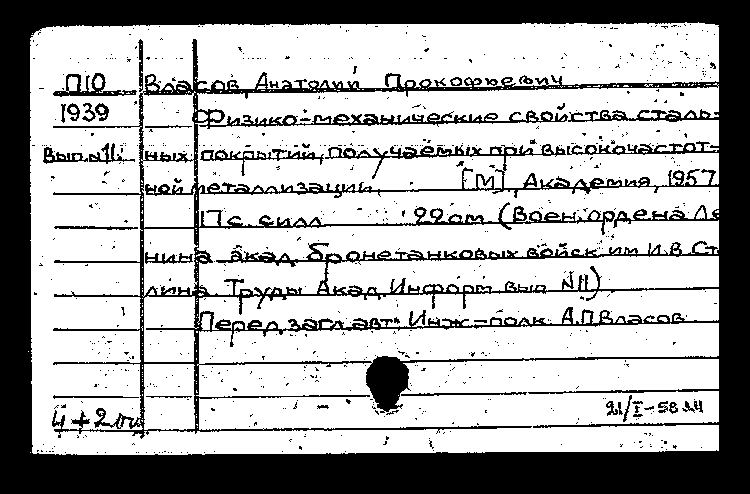 П10 Власов, Анатолий Прокофьевич
1939 Физико-механические свойства сталь-
Вып.№11. ных покрытий, получаемых при высокочастот-
ной металлизации. [М], Академия, 1957
17 с. с илл 22 см (Воен. ордена Ле
нина акад. бронетанковых войск им И.В. Ст
лина Труды Акад. Информ вып №11)
Перед. загл. авт. Инж-полк А.П. Власов
4+2
21/I-58